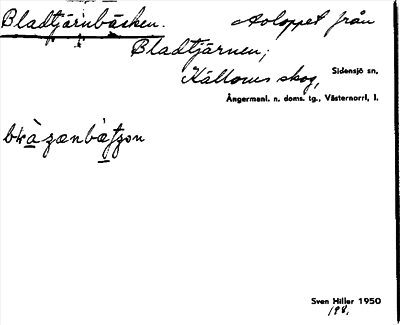 Bladtjärnbäcken. Avloppet från
Bladtjärnen;
Källoms skog, Sidensjö sn,
Ångermanl. n. doms. tg., Västernorrl. l.
Sven Hiller 1950
198,